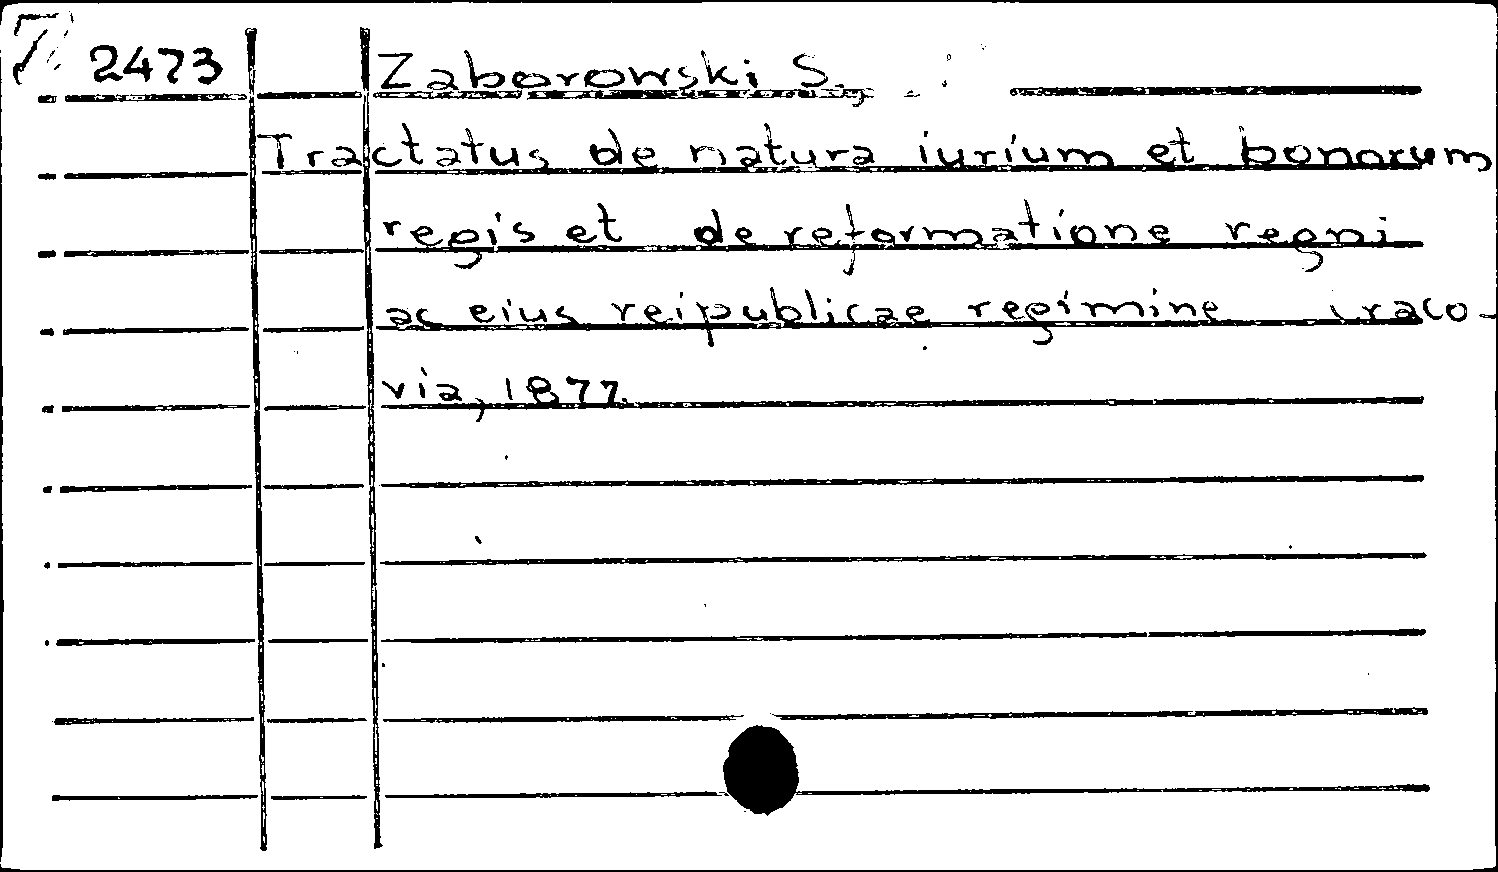 Z 2473 Zaborowski S.,
Tractatus de natura iurium et bonorum
regis et de reformatione regni
ac eius reipublicae regimine Craco-
via, 1877.